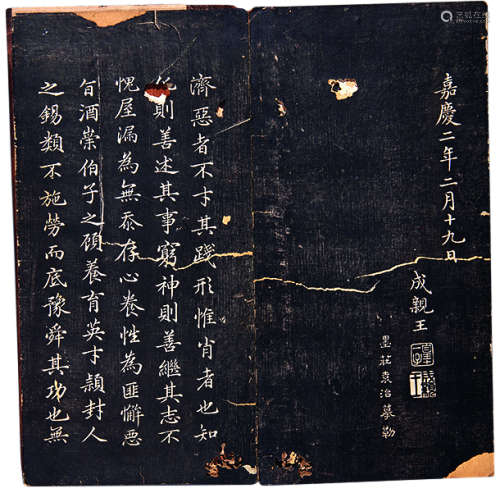 嘉慶二年二月十九日
成親王
墨莊袁治摹勒
濟惡者不才其踐形惟肖者也知
化則善述其事窮神則善繼其志不
愧屋漏為無忝存心養性為匪懈惡
旨酒崇伯子之顧養育英才頴封人
之錫類不施勞而底豫舜其功也無